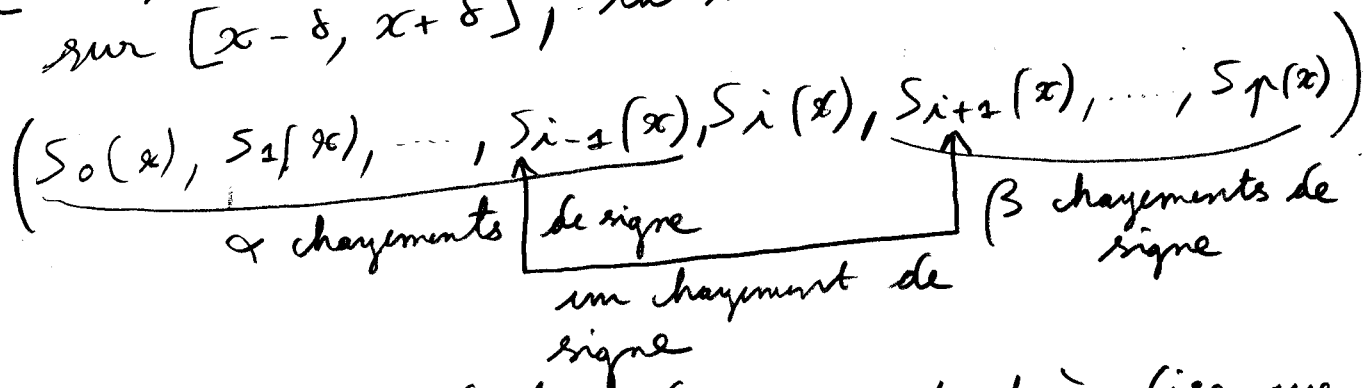 sur [x-δ, x+δ],
(S₀(x), S₁(x), ...., Sᵢ₋₁(x), Sᵢ(x), Sᵢ₊₁(x), ...., Sₚ(x))
α changements de signe β changements de
signe
un changement de
signe